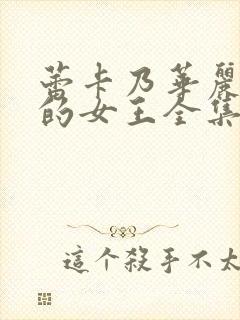 蕾卡乃華麗
的女王全集
這个殺手不太